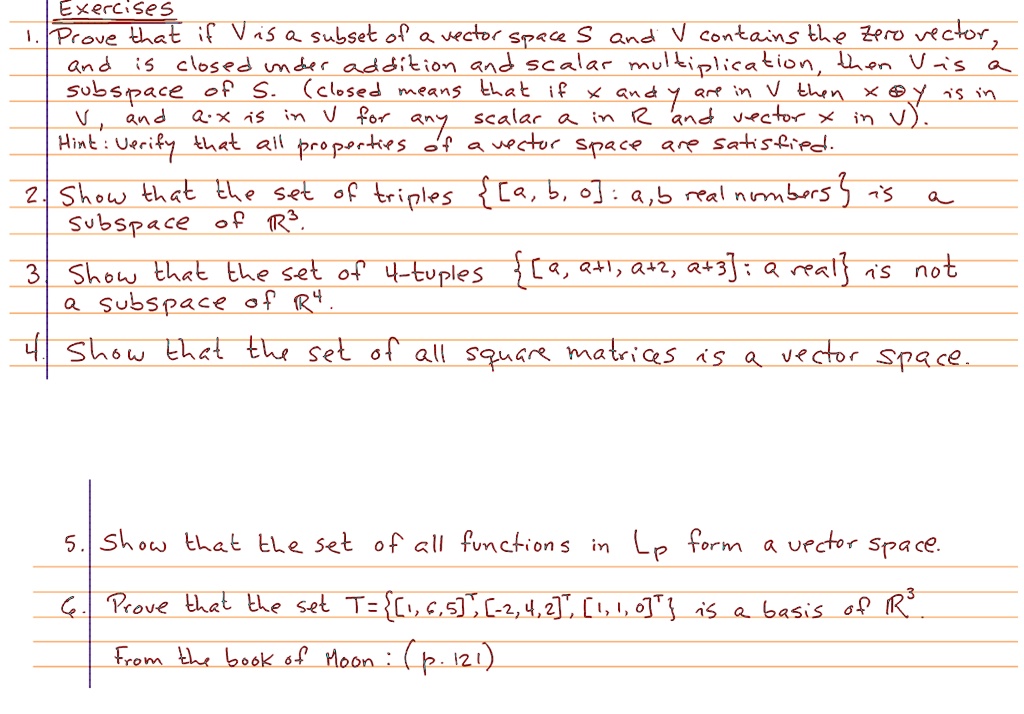 Exercises
1. Prove that if V is a subset of a vector space S and V contains the zero vector,
and is closed under addition and scalar multiplication, then V is a
subspace of S. (closed means that if x and y are in V then x ⊕ y is in
V, and a·x is in V for any scalar a in R and vector x in V).
Hint: Verify that all properties of a vector space are satisfied.
2. Show that the set of triples {[a, b, 0]: a,b real numbers} is a
subspace of ℝ³.
3 Show that the set of 4-tuples {[a, a+1, a+2, a+3]: a real} is not
a subspace of ℝ⁴.
4. Show that the set of all square matrices is a vector space.
5. Show that the set of all functions in Lp form a vector space.
6. Prove that the set T={[1,6,5]ᵀ, [-2,4,2]ᵀ, [1,1,0]ᵀ} is a basis of ℝ³.
From the book of Moon: (p. 121)